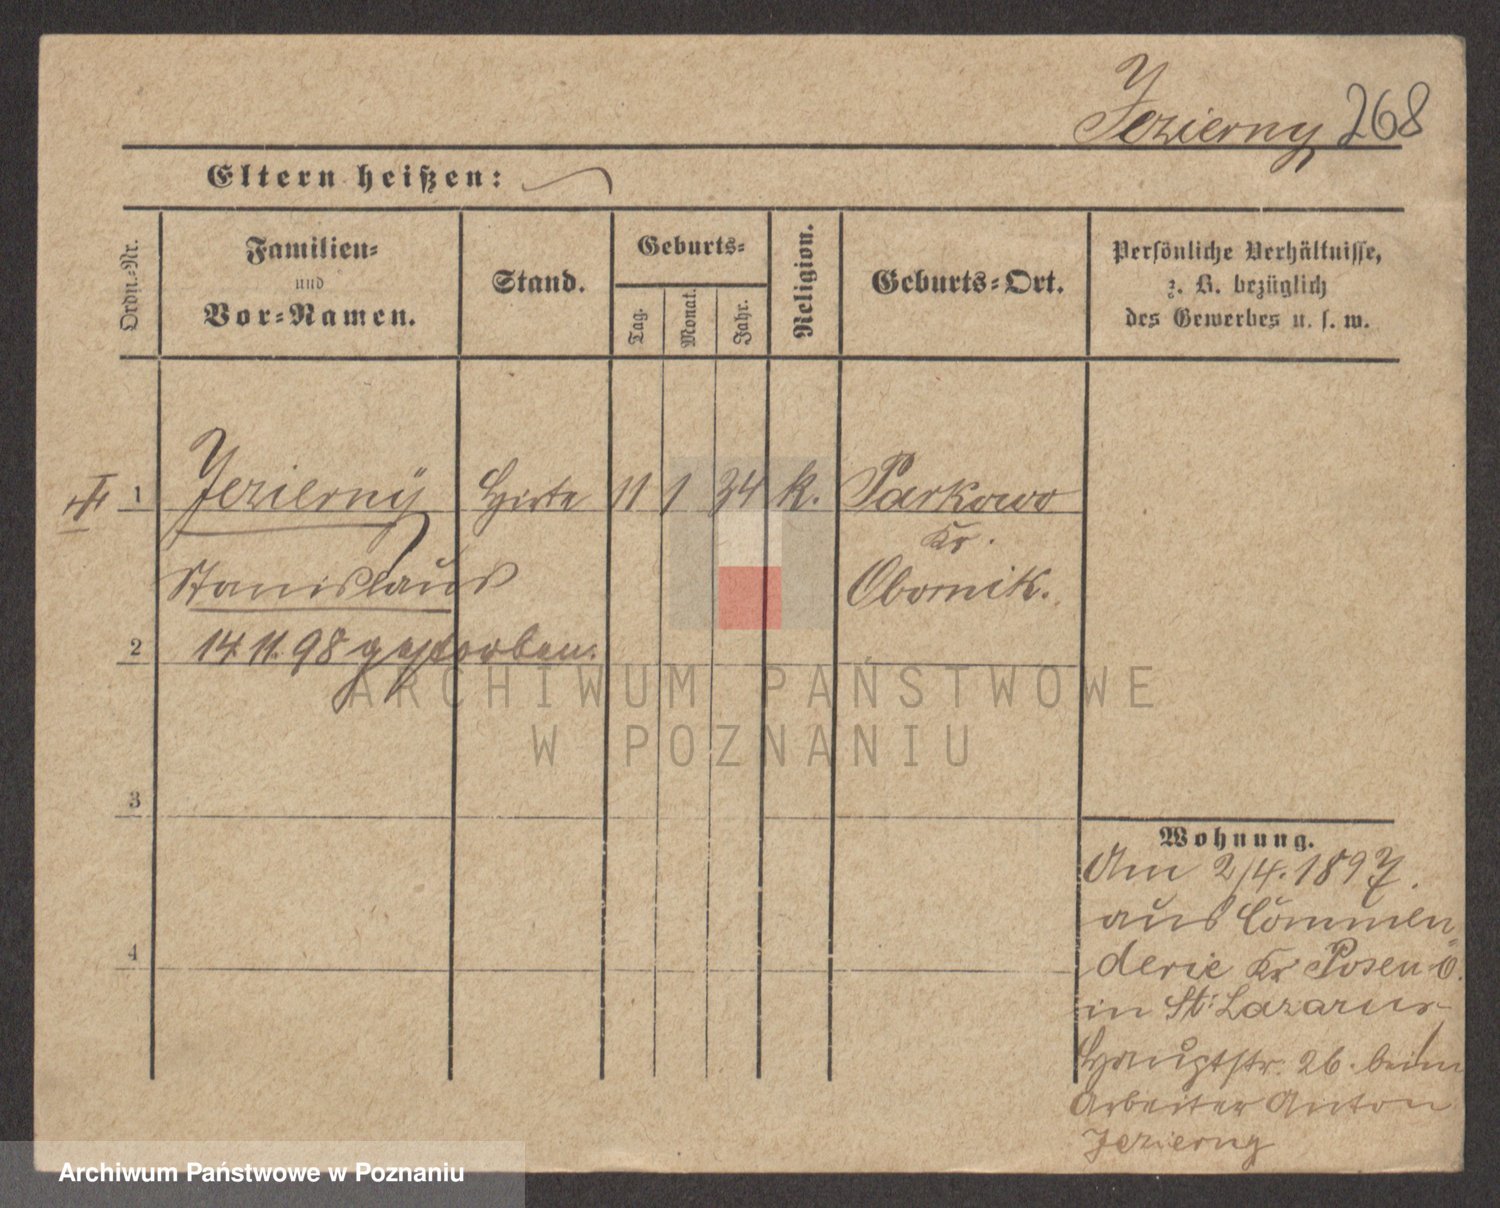 Jezierny 268
Eltern heißen:
Ordn.-Nr.
Familien-
und
Vor-Namen.
Stand.
Geburts-
Tag.
Monat.
Jahr.
Religion.
Geburts-Ort.
Persönliche Verhältnisse,
z. B. bezüglich
des Gewerbes u. s. w.
1 Jezierny Hirte 11 1 34 k. Parkowo
Kr.
Stanislaus Obornik.
2 14. 11. 98 gestorben.
3
4
Wohnung.
Am 2/4. 1897.
aus Commen
derie Kr Posen O.
in St: Lazarus
Hauptstr. 26. beim
Arbeiter Anton
Jezierny
ARCHIWUM PAŃSTWOWE
W POZNANIU
Archiwum Państwowe w Poznaniu